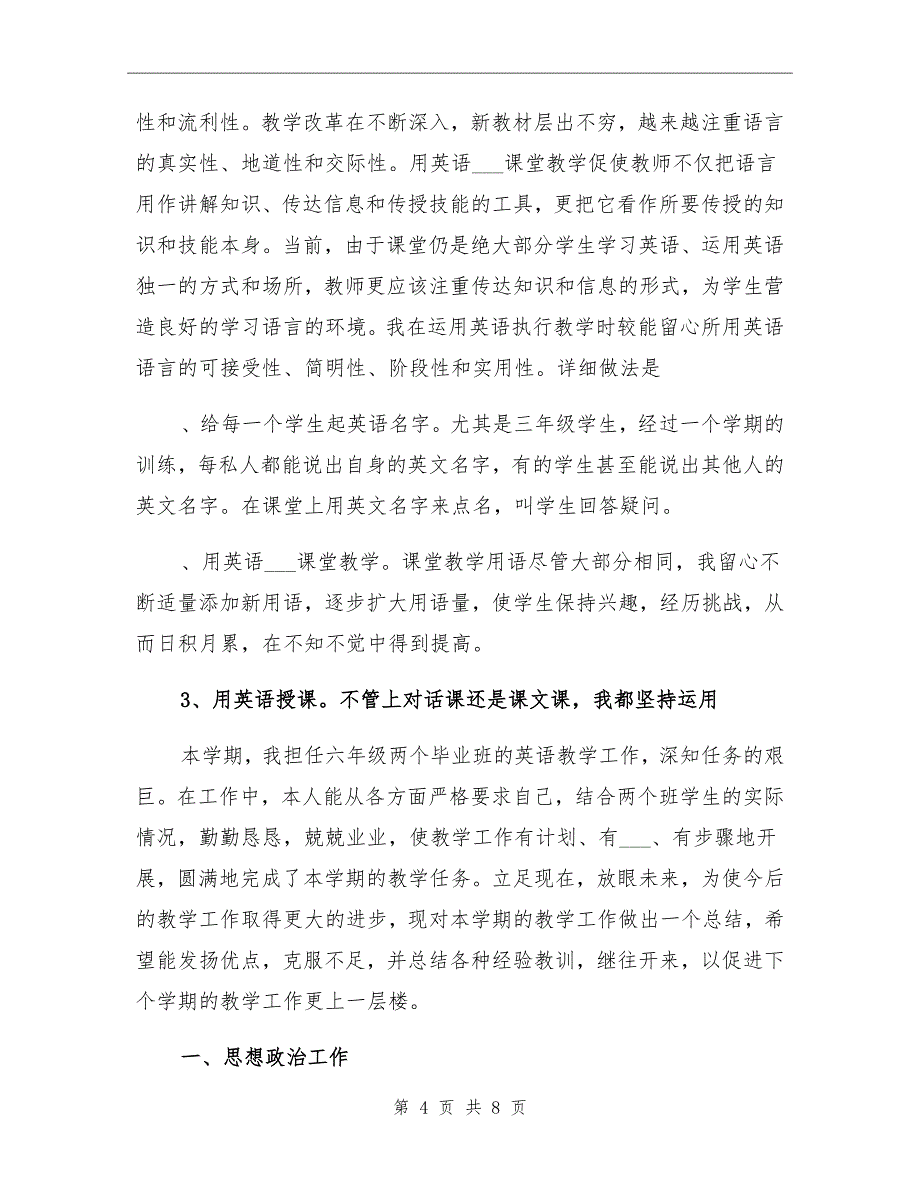 性和流利性。教学改革在不断深入，新教材层出不穷，越来越注重语言
的真实性、地道性和交际性。用英语___课堂教学促使教师不仅把语言
用作讲解知识、传达信息和传授技能的工具，更把它看作所要传授的知
识和技能本身。当前，由于课堂仍是绝大部分学生学习英语、运用英语
独一的方式和场所，教师更应该注重传达知识和信息的形式，为学生营
造良好的学习语言的环境。我在运用英语执行教学时较能留心所用英语
语言的可接受性、简明性、阶段性和实用性。详细做法是
、给每一个学生起英语名字。尤其是三年级学生，经过一个学期的
训练，每私人都能说出自身的英文名字，有的学生甚至能说出其他人的
英文名字。在课堂上用英文名字来点名，叫学生回答疑问。
、用英语___课堂教学。课堂教学用语尽管大部分相同，我留心不
断适量添加新用语，逐步扩大用语量，使学生保持兴趣，经历挑战，从
而日积月累，在不知不觉中得到提高。
3、用英语授课。不管上对话课还是课文课，我都坚持运用
本学期，我担任六年级两个毕业班的英语教学工作，深知任务的艰
巨。在工作中，本人能从各方面严格要求自己，结合两个班学生的实际
情况，勤勤恳恳，兢兢业业，使教学工作有计划、有___、有步骤地开
展，圆满地完成了本学期的教学任务。立足现在，放眼未来，为使今后
的教学工作取得更大的进步，现对本学期的教学工作做出一个总结，希
望能发扬优点，克服不足，并总结各种经验教训，继往开来，以促进下
个学期的教学工作更上一层楼。
一、思想政治工作
第 4 页 共 8 页